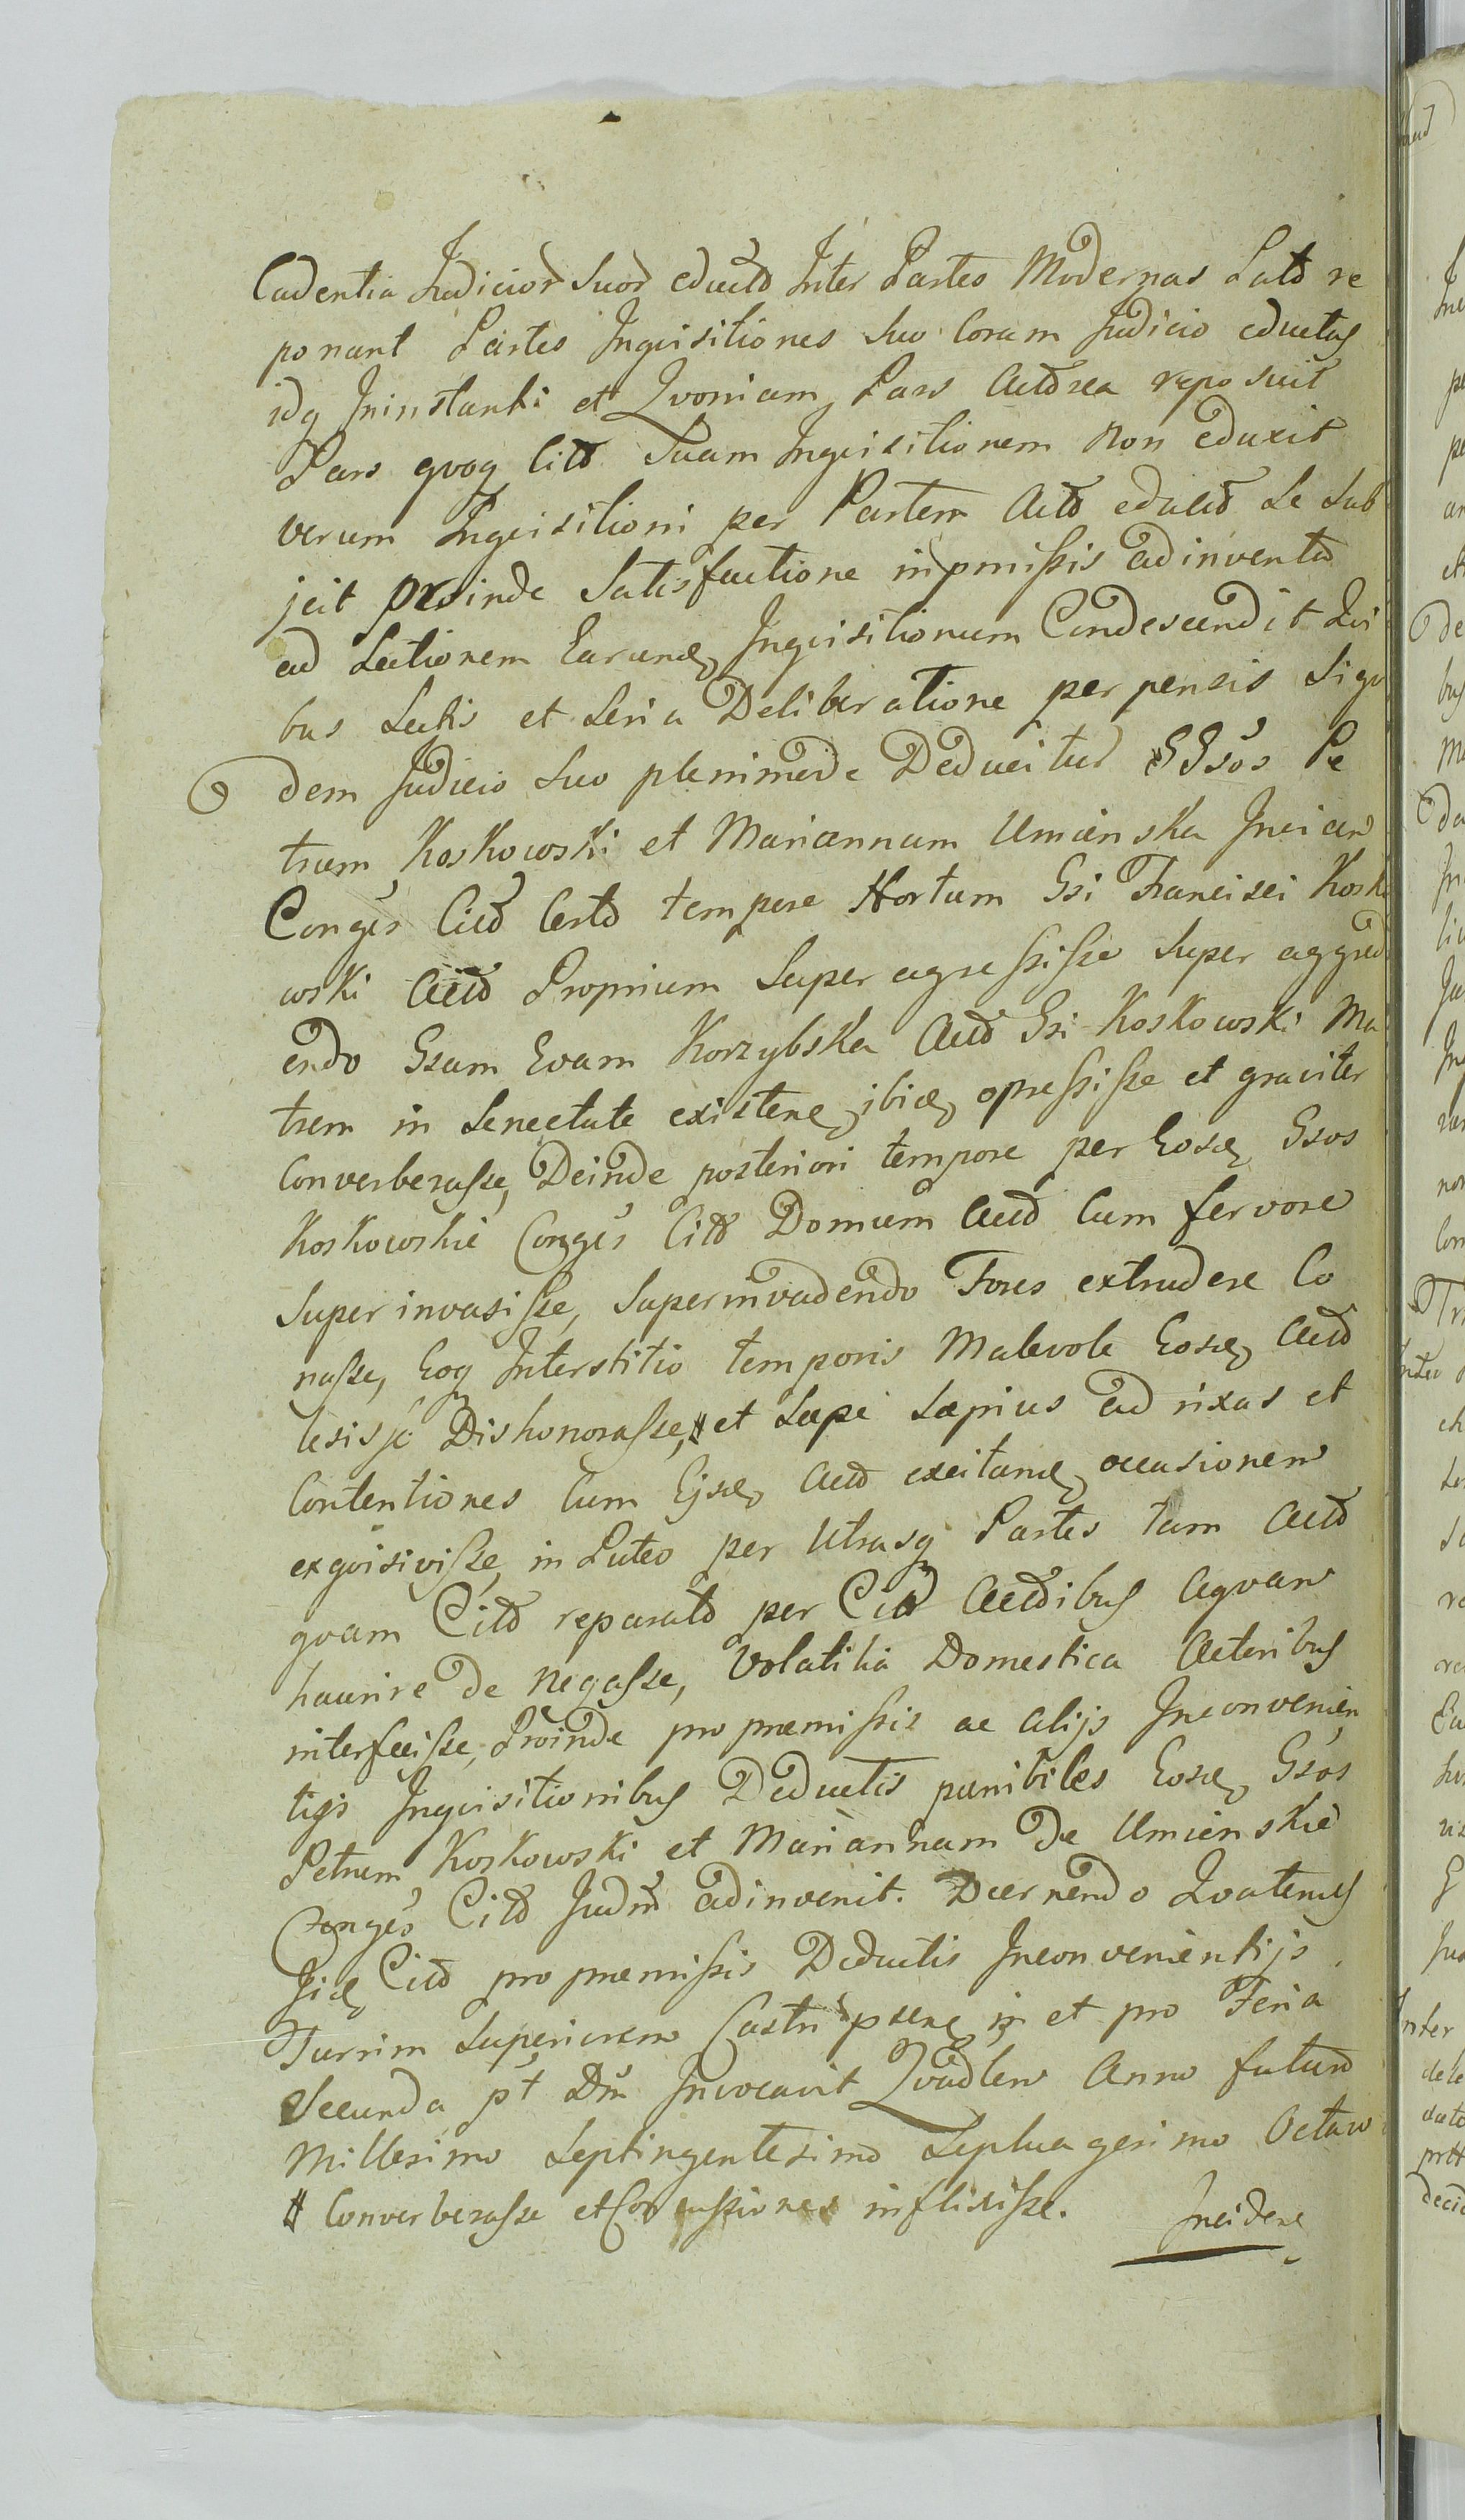 Cadentia Judicior Suor educto Inter Partes Modernas Lato re
ponant Partes Inqvisitiones Suo Coram Judicio eductas
idq Ininstanti et Qvoniam Pars Actorea reposuit
Pars qvoq Citt Suam Inqvisitionem Non eduxit
verum Inqvisitioni per Partem Act educt Se Sub
jecit proinde Satisfactione inpmissis adinventa
ad Lectionem Earund Inqvisitionum Condescendit Qvi
bus Lectis et Seria Deliberatione perpensis Siqv
dem Judicio Suo plenimode Deducitur GGsos Pe
trum Koskowski et Mariannam Umienska
Conges Citt Certo tempore Hortum Gsi Francisci Kosko
wski Act Proprium Super agressisse Super aggred
endo Gsam Evam Korzybska Act Gsi Koskowski Ma
trem in Senectute existen ibid opressisse et graviter
Converberasse, Deinde posteriori tempore per Eosd Gsos
Koskowskie Conges Citt Domum Act Cum fervore
Super invasisse, Superinvadendo Fores extrudere Co
nasse, Eoq Interstitio temporis Malevole Eosd Act
lesisse Dishonorasse, # et Sæpe Sæpius ad rixas et
Contentiones Cum Ejsd Act excitand occasionem
exqvisivisse, in Puteo per Utrasq Partes tam Act
qvam Citt reparato per Citt Actoribus Aqvam
haurire De negasse, Volatilia Domestica Actoribus
interfecisse, Proinde pro præmissis ac alijs Inconvenien
tijs Inqvisitionibus Deductis punibiles Eosd Gsos
Petrum Koskowski et Mariannam De Umienskie
Conges Citt Judm adinvenit. Decernendo Qvatenus
Jid Citt pro præmissis Deductis Inconvenientijs
Turrim Superiorem Castri psen in et pro Feria
Secunda pt Dm Invocavit Qvadlem Anno futuro
Millesimo Septingentesimo Septuagesimo Octavo
# Converberasse et Concussiones inflixisse. Inciden